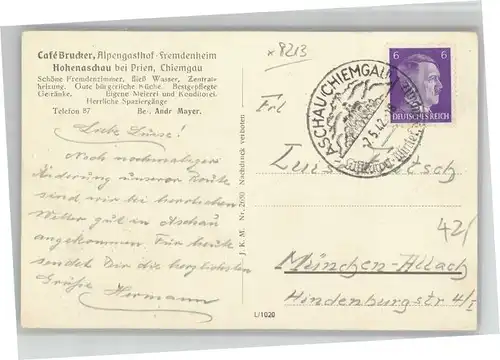 Café Brucker, Alpengasthof - Fremdenheim
Hohenaschau bei Prien, Chiemgau
Schöne Fremdenzimmer, fließ. Wasser, Zentral-
heizung. Gute bürgerliche Küche. Bestgepflegte
Getränke. Eigene Metzgerei und Konditorei.
Herrliche Spaziergänge
Telefon 87 Bes. Andr. Mayer.
8213
6 6
DEUTSCHES REICH
ASCHAU (CHIEMGAU)
2.5.42
Frl.
Liebe Luise!
Noch nochmaliger
Änderung unserer Route
sind wir bei herrlichem
Wetter gut in Aschau
angekommen. Für heute
sendet Dir die herzlichsten
Grüße Hermann
J. K. M. Nr. 2650 Nachdruck verboten
42/
München-Allach
Hindenburgstr 4/I
L/1020